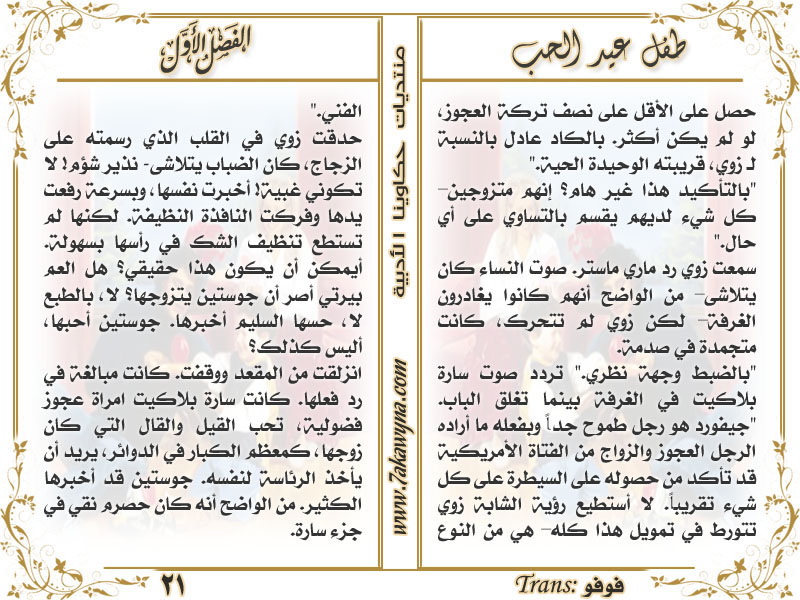 طفل عيد الحب
حصل على الأقل على نصف تركة العجوز،
لو لم يكن أكثر. بالكاد عادل بالنسبة
لـ زوي، قريبته الوحيدة الحية."
"بالتأكيد هذا غير هام؟ إنهم متزوجين–
كل شيء لديهم يقسم بالتساوي على أي
حال."
سمعت زوي رد ماري ماستر. صوت النساء كان
يتلاشى– من الواضح أنهم كانوا يغادرون
الغرفة– لكن زوي لم تتحرك، كانت
متجمدة في صدمة.
"بالضبط وجهة نظري." تردد صوت سارة
بلاكيت في الغرفة بينما تغلق الباب.
"جيفورد هو رجل طموح جداً وبفعله ما أراده
الرجل العجوز والزواج من الفتاة الأمريكية
قد تأكد من حصوله على السيطرة على كل
شيء تقريباً. لا أستطيع رؤية الشابة زوي
تتورط في تمويل هذا كله– هي من النوع
Trans: فوفو
منتديات حكاوينا الأدبية
www.7akawyna.com
الفصل الأول
الفني."
حدقت زوي في القلب الذي رسمته على
الزجاج، كان الضباب يتلاشى- نذير شؤم! لا
تكوني غبية! أخبرت نفسها، وبسرعة رفعت
يدها وفركت النافذة النظيفة. لكنها لم
تستطع تنظيف الشك في رأسها بسهولة.
أيمكن أن يكون هذا حقيقي؟ هل العم
بيرتي أصر أن جوستين يتزوجها؟ لا، بالطبع
لا، حسها السليم أخبرها. جوستين أحبها،
أليس كذلك؟
انزلقت من المقعد ووقفت. كانت مبالغة في
رد فعلها. كانت سارة بلاكيت امراة عجوز
فضولية، تحب القيل والقال التي كان
زوجها، كمعظم الكبار في الدوائر، يريد أن
يأخذ الرئاسة لنفسه. جوستين قد أخبرها
الكثير. من الواضح أنه كان حصرم نقي في
جزء سارة.
٢١